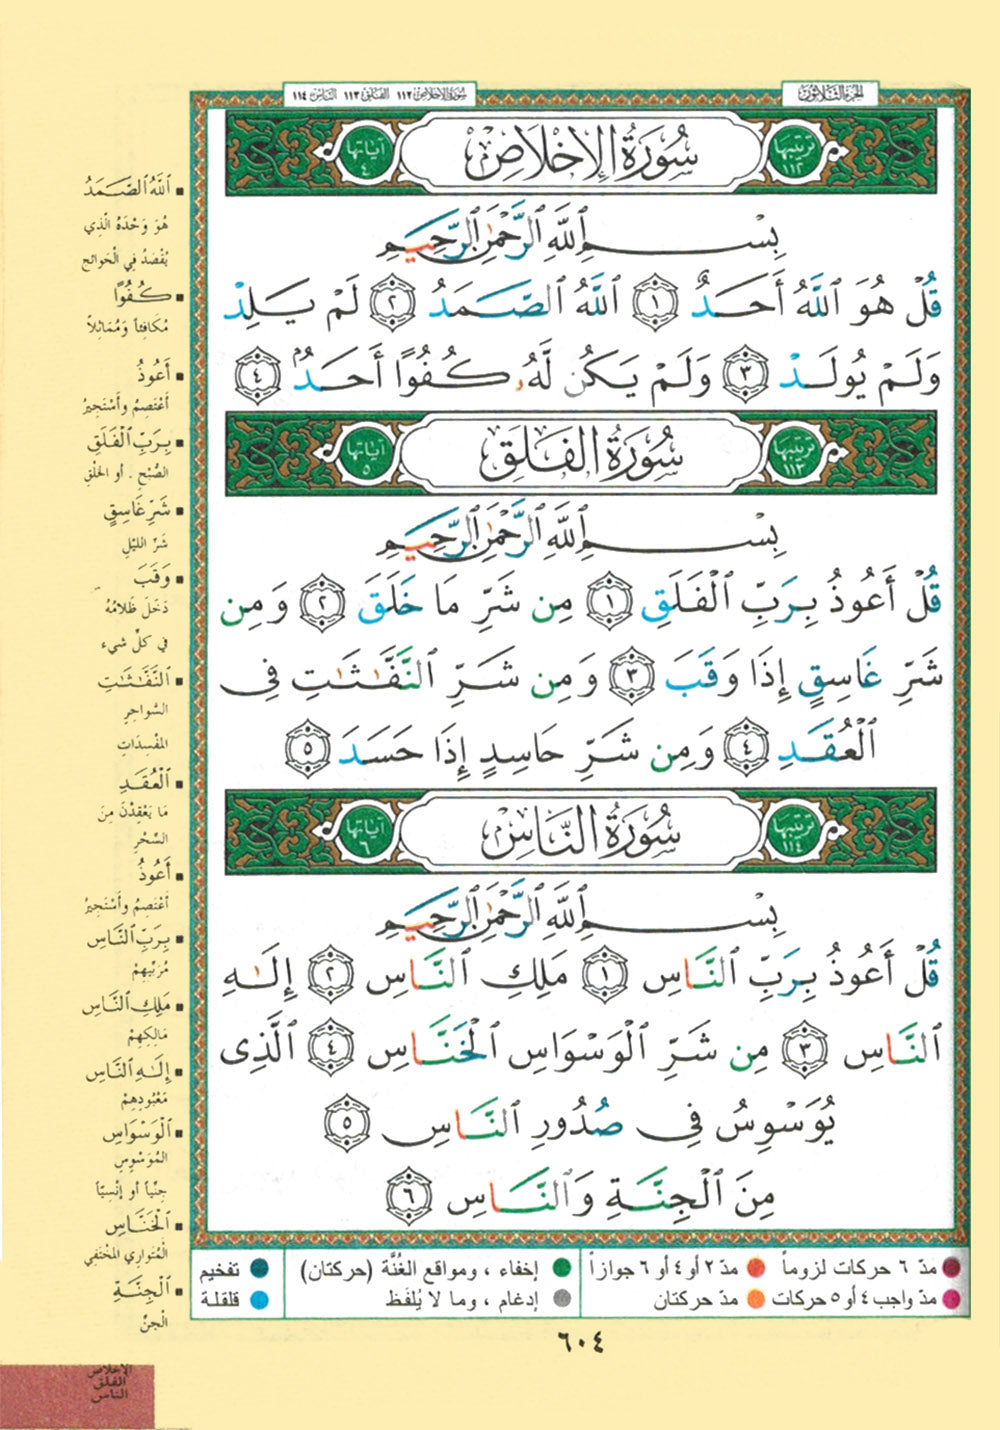 الجزء الثلاثون
سورة الإخلاص ١١٢ الفلق ١١٣ الناس ١١٤
ترتيبها ١١٢ سُورَةُ الإِخْلَاصِ آياتها ٤
بِسْمِ ٱللَّهِ ٱلرَّحْمَٰنِ ٱلرَّحِيمِ
قُلْ هُوَ ٱللَّهُ أَحَدٌ ١ ٱللَّهُ ٱلصَّمَدُ ٢ لَمْ يَلِدْ
وَلَمْ يُولَدْ ٣ وَلَمْ يَكُن لَّهُۥ كُفُوًا أَحَدٌۢ ٤
ترتيبها ١١٣ سُورَةُ الفَلَقِ آياتها ٥
بِسْمِ ٱللَّهِ ٱلرَّحْمَٰنِ ٱلرَّحِيمِ
قُلْ أَعُوذُ بِرَبِّ ٱلْفَلَقِ ١ مِن شَرِّ مَا خَلَقَ ٢ وَمِن
شَرِّ غَاسِقٍ إِذَا وَقَبَ ٣ وَمِن شَرِّ ٱلنَّفَّٰثَٰتِ فِى
ٱلْعُقَدِ ٤ وَمِن شَرِّ حَاسِدٍ إِذَا حَسَدَ ٥
ترتيبها ١١٤ سُورَةُ النَّاسِ آياتها ٦
بِسْمِ ٱللَّهِ ٱلرَّحْمَٰنِ ٱلرَّحِيمِ
قُلْ أَعُوذُ بِرَبِّ ٱلنَّاسِ ١ مَلِكِ ٱلنَّاسِ ٢ إِلَٰهِ
ٱلنَّاسِ ٣ مِن شَرِّ ٱلْوَسْوَاسِ ٱلْخَنَّاسِ ٤ ٱلَّذِى
يُوَسْوِسُ فِى صُدُورِ ٱلنَّاسِ ٥
مِنَ ٱلْجِنَّةِ وَٱلنَّاسِ ٦
▪ ٱللَّهُ ٱلصَّمَدُ
هُوَ وَحْدَهُ الَّذِي
يُقْصَدُ فِي الْحَوائجِ
▪ كُفُوًا
مُكَافِئاً وَمُمَاثِلاً
▪ أَعُوذُ
أَعْتَصِمُ وأَسْتَجِيرُ
▪ بِرَبِّ ٱلْفَلَقِ
الصُّبْحِ . أو الخَلْقِ
▪ شَرِّ غَاسِقٍ
شَرِّ الليْلِ
▪ وَقَبَ
دَخَلَ ظَلامُهُ
في كلِّ شيء
▪ ٱلنَّفَّٰثَٰتِ
السَّواحِرِ
المفْسِدَاتِ
▪ ٱلْعُقَدِ
مَا يَعْقِدْنَ مِنَ
السِّحْرِ
▪ أَعُوذُ
أَعْتَصِمُ وأَسْتَجِيرُ
▪ بِرَبِّ ٱلنَّاسِ
مُرَبِّيهِمْ
▪ مَلِكِ ٱلنَّاسِ
مَالِكِهِمْ
▪ إِلَٰهِ ٱلنَّاسِ
مَعْبُودِهِمْ
▪ ٱلْوَسْوَاسِ
المُوَسْوِسِ
جِنِّياً أو إنْسِيًّا
▪ ٱلْخَنَّاسِ
الْمُتَوارِي المُخْتَفِي
▪ ٱلْجِنَّةِ
الْجِنِّ
مدّ ٦ حركات لزوماً مدّ ٢ أو ٤ أو ٦ جوازاً إخفاء ، ومواقع الغُنَّة (حركتان) تفخيم
مدّ واجب ٤ أو ٥ حركات مدّ حركتان إدغام ، وما لا يُلفَظ قلقلة
٦٠٤
الإخلاص
الفلق
الناس